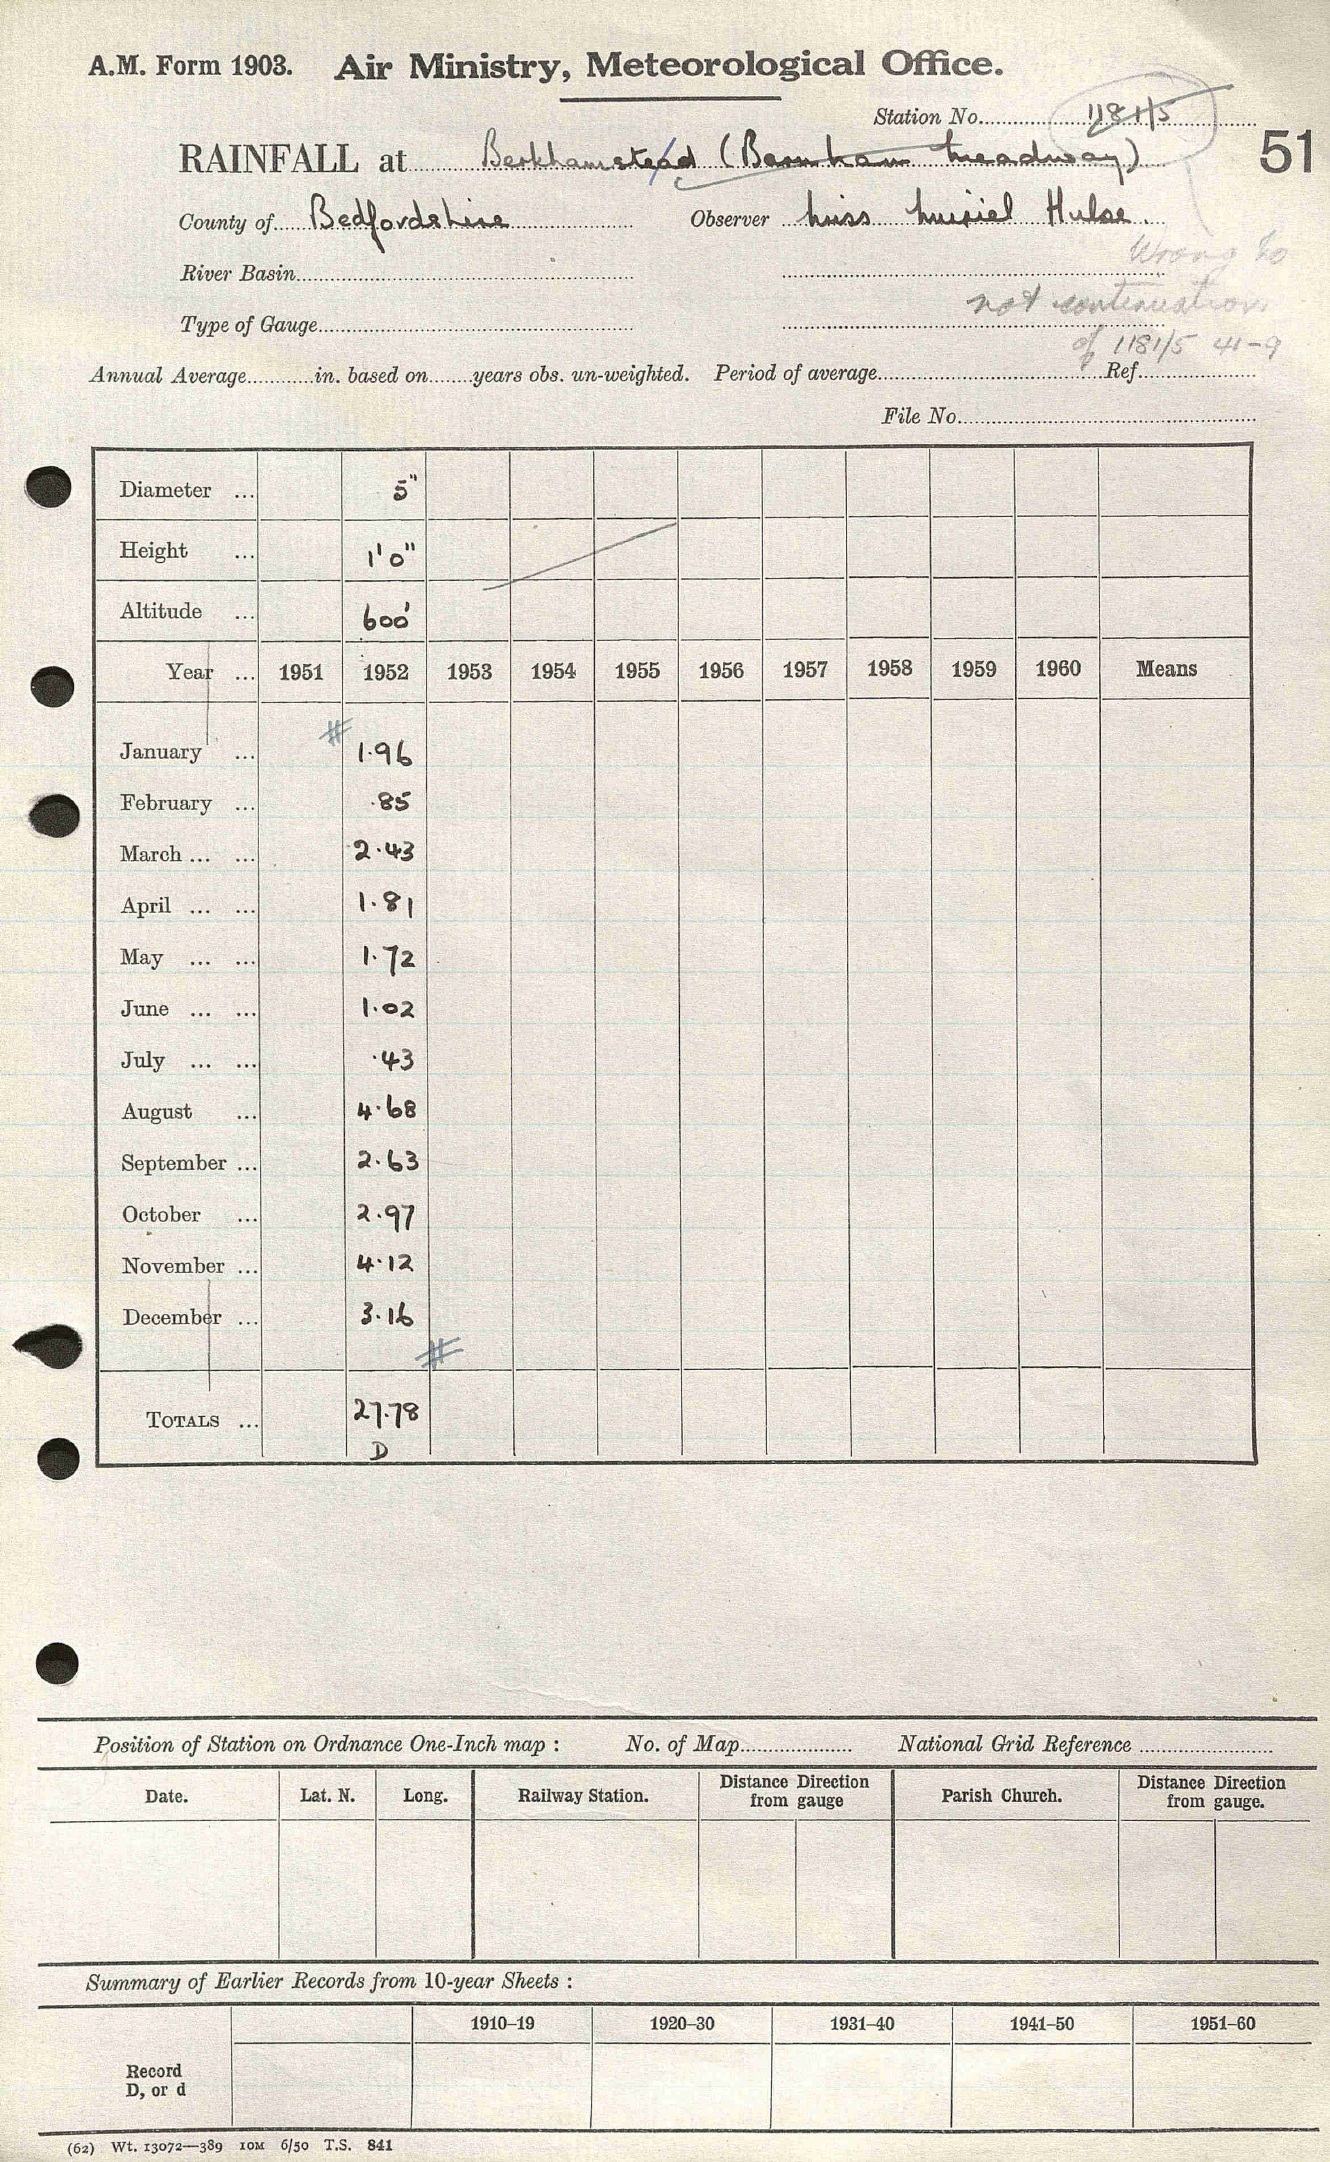 A.M. Form 1903. Air Ministry, Meteorological Office.
Station No. 1181/5
51
RAINFALL at Berkhamstead (Barnham Meadway)
County of Bedfordshire Observer Miss Muriel Hulse.
Wrong to
River Basin
not continuation
Type of Gauge
of 1181/5 41-9
Annual Average in. based on years obs. un-weighted. Period of average Ref
File No.
Diameter ... 5"
Height ... 1'0"
Altitude ... 600'
Year ... 1951 1952 1953 1954 1955 1956 1957 1958 1959 1960 Means
#
January ... 1.96
February ... .85
March ... ... 2.43
April ... ... 1.81
May ... ... 1.72
June ... ... 1.02
July ... ... .43
August ... 4.68
September ... 2.63
October ... 2.97
November ... 4.12
December ... 3.16
#
TOTALS ... 27.78
D
Position of Station on Ordnance One-Inch map : No. of Map National Grid Reference
Date. Lat. N. Long. Railway Station. Distance Direction from gauge Parish Church. Distance Direction from gauge.
Summary of Earlier Records from 10-year Sheets :
1910–19 1920–30 1931–40 1941–50 1951–60
Record
D, or d
(62) Wt. 13072—389 10M 6/50 T.S. 841